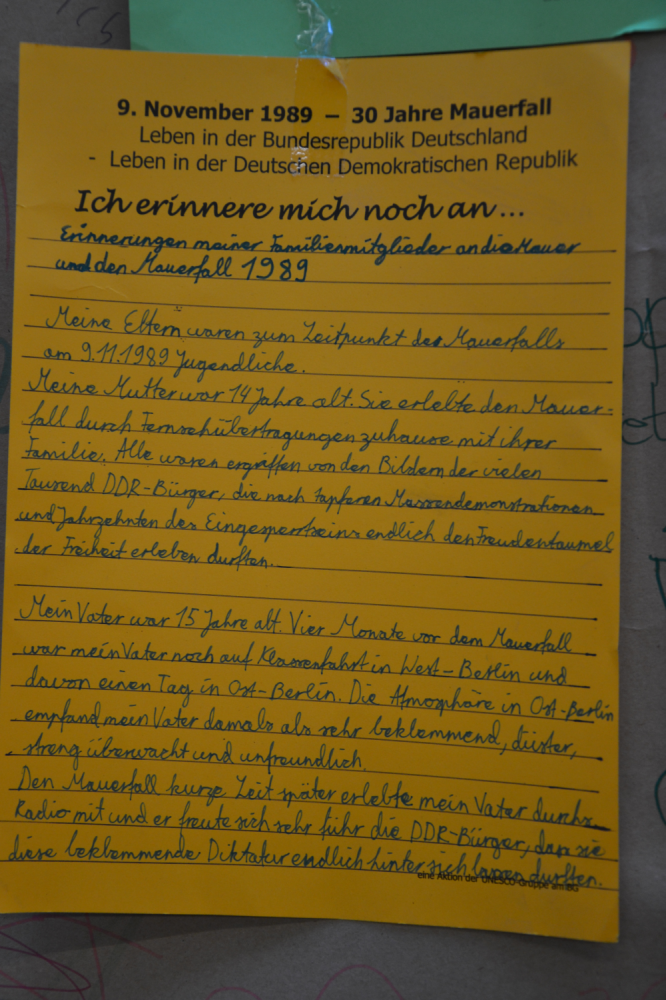 9. November 1989 – 30 Jahre Mauerfall
Leben in der Bundesrepublik Deutschland
- Leben in der Deutschen Demokratischen Republik
Ich erinnere mich noch an...
Erinnerungen meiner Familienmitglieder an die Mauer
und den Mauerfall 1989
Meine Eltern waren zum Zeitpunkt des Mauerfalls
am 9.11.1989 Jugendliche.
Meine Mutter war 14 Jahre alt. Sie erlebte den Mauer=
fall durch Fernsehübertragungen zuhause mit ihrer
Familie. Alle waren ergriffen von den Bildern der vielen
Tausend DDR-Bürger, die nach tapferen Massendemonstrationen
und Jahrzehnten des Eingesperrtseins endlich den Freudentaumel
der Freiheit erleben durften.
Mein Vater war 15 Jahre alt. Vier Monate vor dem Mauerfall
war mein Vater noch auf Klassenfahrt in West-Berlin und
davon einen Tag in Ost-Berlin. Die Atmosphäre in Ost-Berlin
empfand mein Vater damals als sehr beklemmend, düster,
streng überwacht und unfreundlich.
Den Mauerfall kurze Zeit später erlebte mein Vater durchs
Radio mit und er freute sich sehr führ die DDR-Bürger, dass sie
diese beklemmende Diktatur endlich hinter sich lassen durften.
eine Aktion der UNESCO-Gruppe am